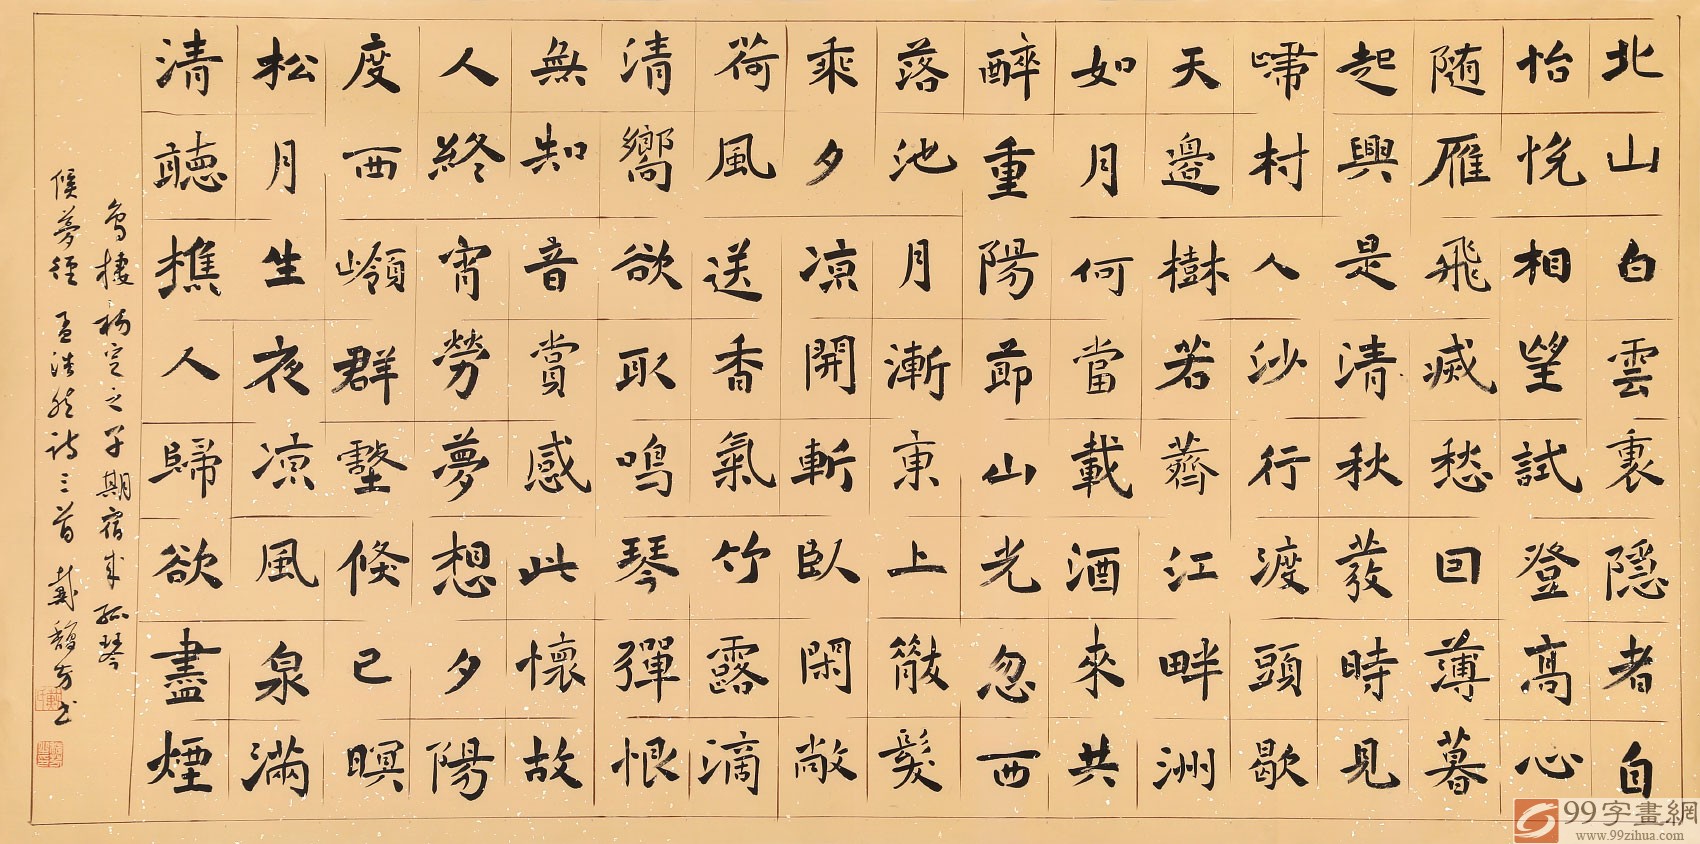 北山白雲裏隱者自
怡悅相望試登高心
随雁飛滅愁回薄暮
起興是清秋發時見
嘯村人沙行渡頭歇
天邊樹若薺江畔洲
如月何當載酒來共
醉重陽節山光忽西
落池月漸東上散髮
乘夕凉開斬臥閑敞
荷風送香氣竹露滴
清嚮欲取鳴琴彈恨
無知音賞感此懷故
人終宵勞夢想夕陽
度西嶺群壑倏已暝
松月生夜凉風泉滿
清聽樵人歸欲盡煙
鳥棲初定之子期宿來孤琴
候夢徑 孟浩然诗三首 戴馥方书
99字畫網
www.99zihua.com